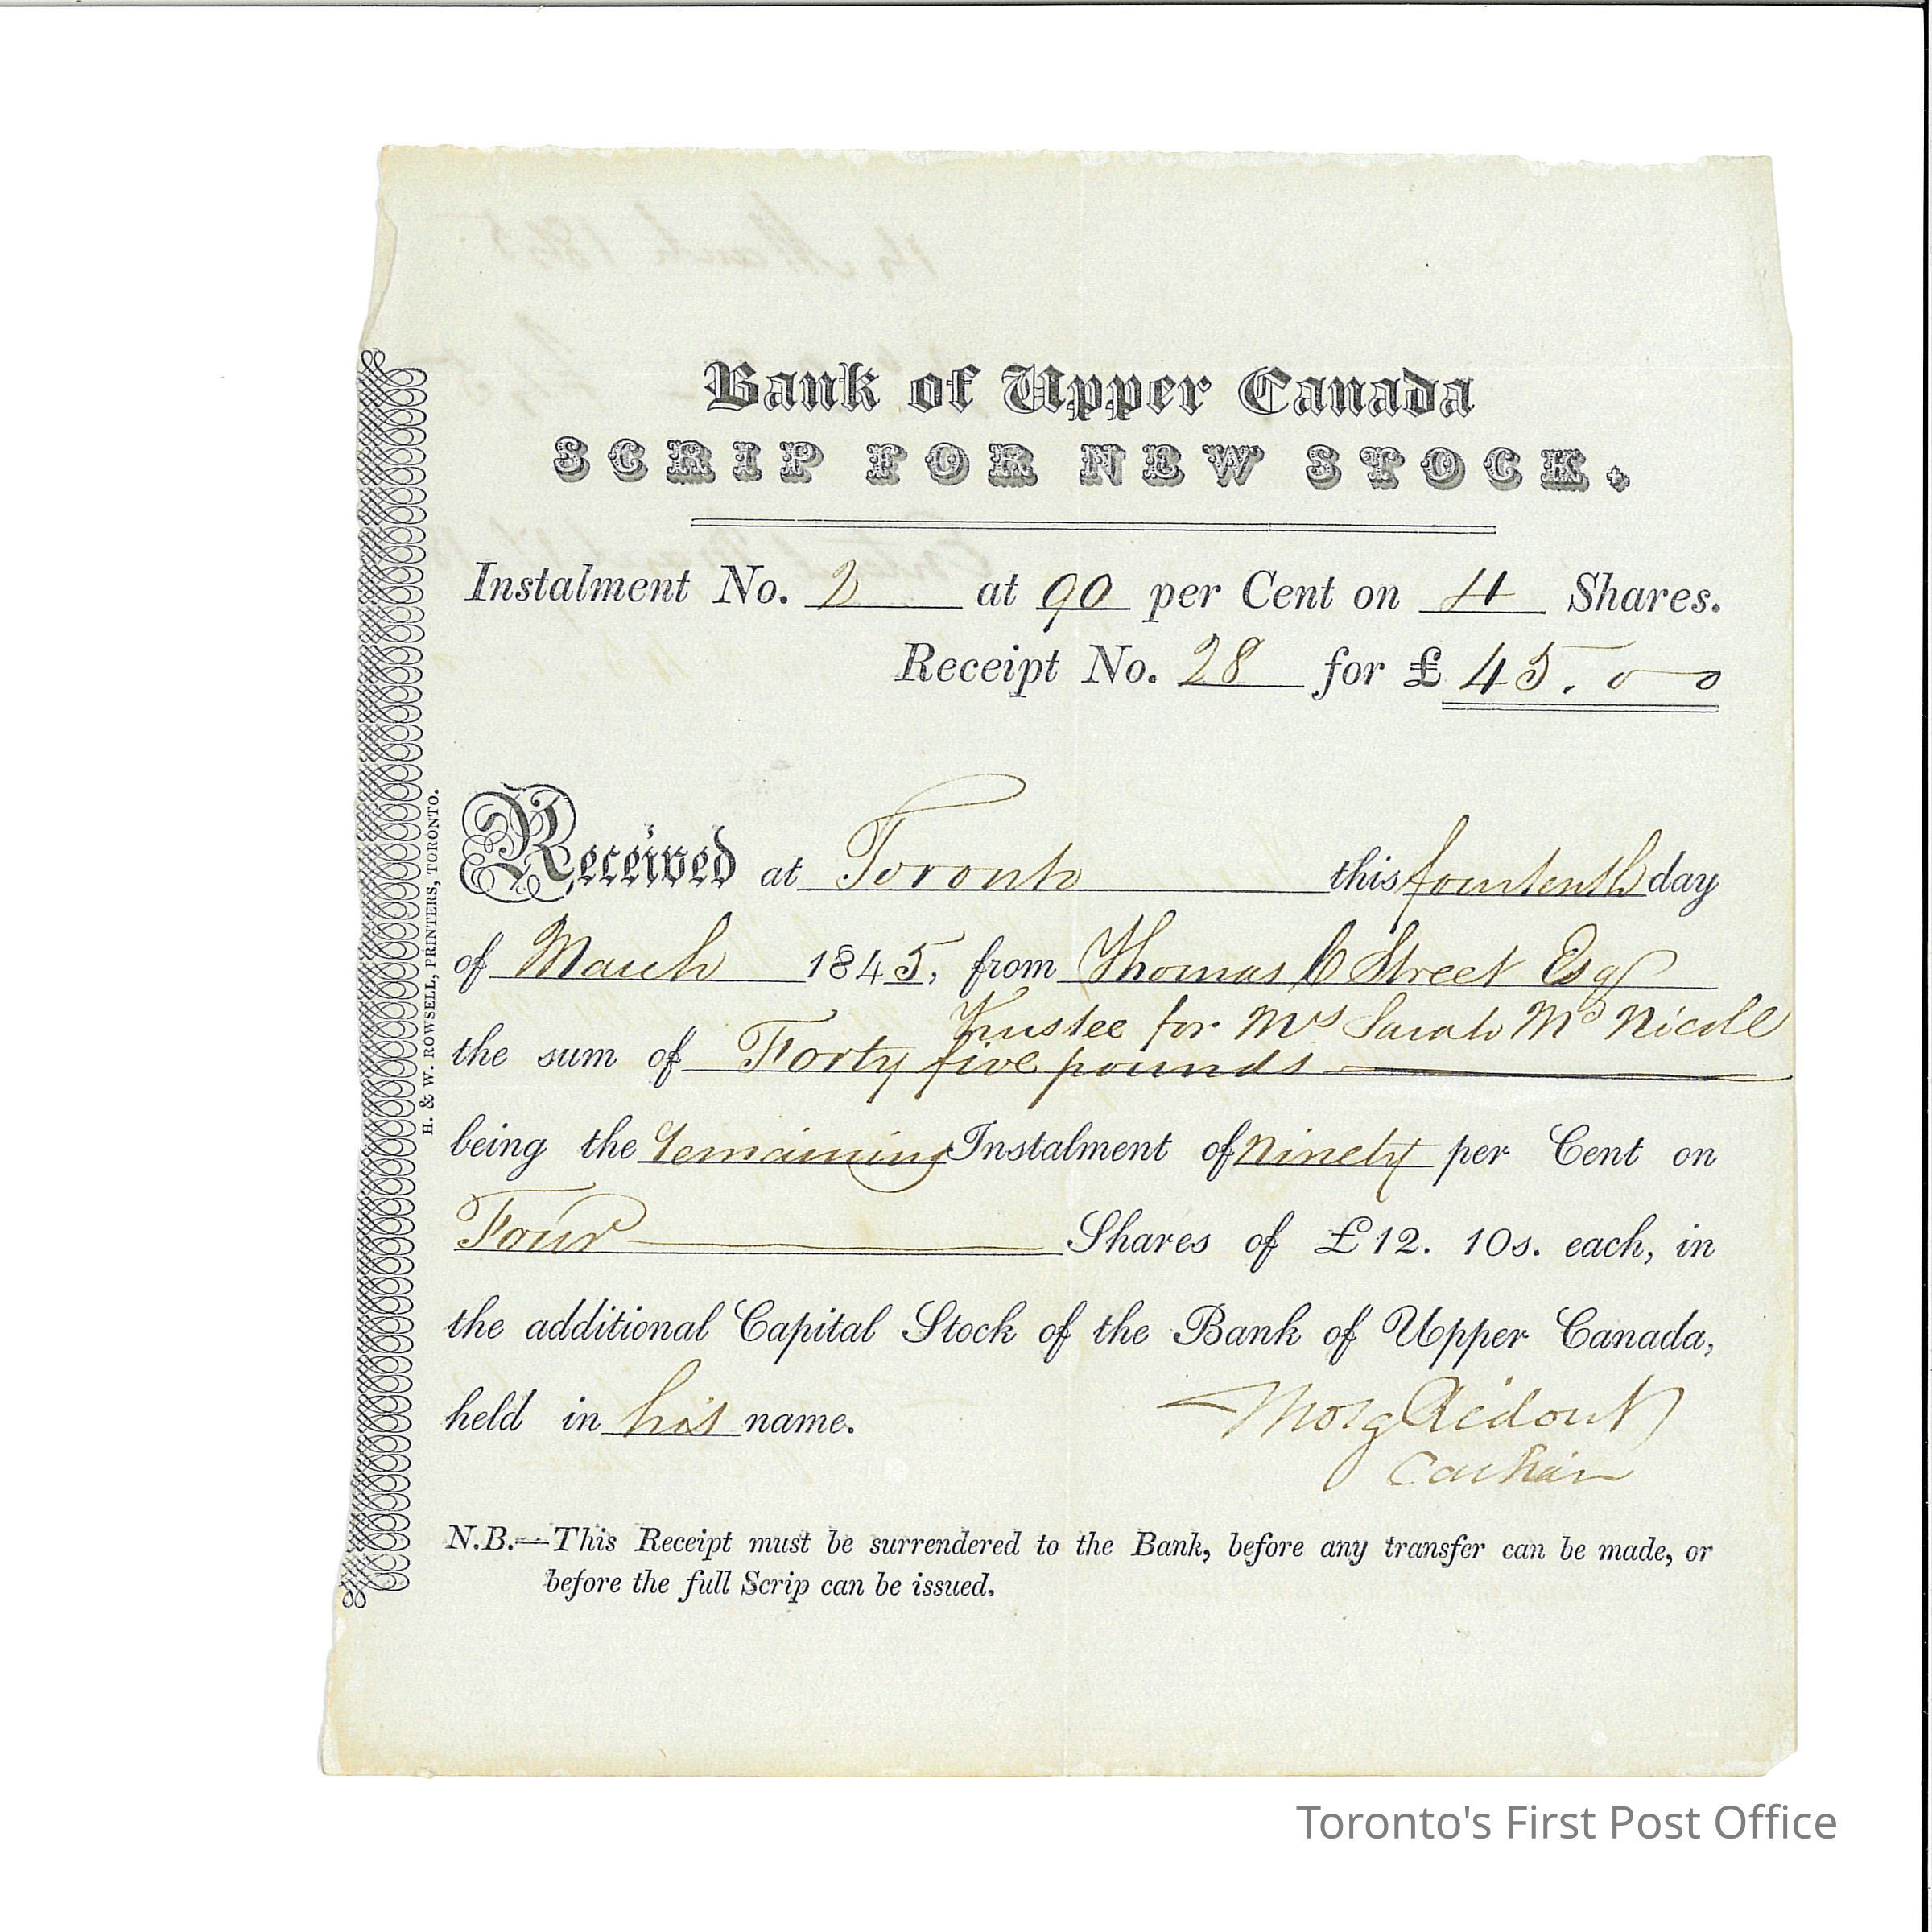 Bank of Upper Canada
SCRIP FOR NEW STOCK.
Instalment No. 2 at 90 per Cent on 4 Shares.
Receipt No. 28 for £ 45. 0 0
Received at Toronto this fourtenth day
of March 1845, from Thomas C Street Esq
Trustee for Mrs Sarah Mc Nicoll
the sum of Forty five pounds
being the remaining Instalment of ninety per Cent on
Four Shares of £12. 10s. each, in
the additional Capital Stock of the Bank of Upper Canada,
held in his name.
Thos G Ridout
Cashier
N.B.—This Receipt must be surrendered to the Bank, before any transfer can be made, or
before the full Scrip can be issued.
H. & W. ROWSELL, PRINTERS, TORONTO.
Toronto's First Post Office